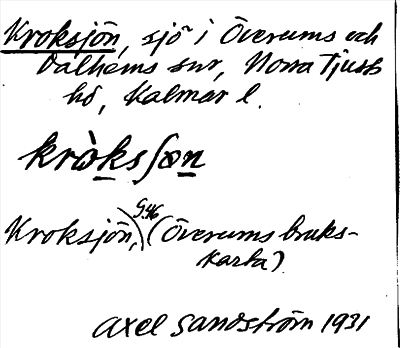 Kroksjön, sjö i Överums och
Dalhems snr, Norra Tjusts
hd, Kalmar l.
kròksʃøn
G.46
Kroksjön, (Överums bruks-
karta)
Axel Sandström 1931